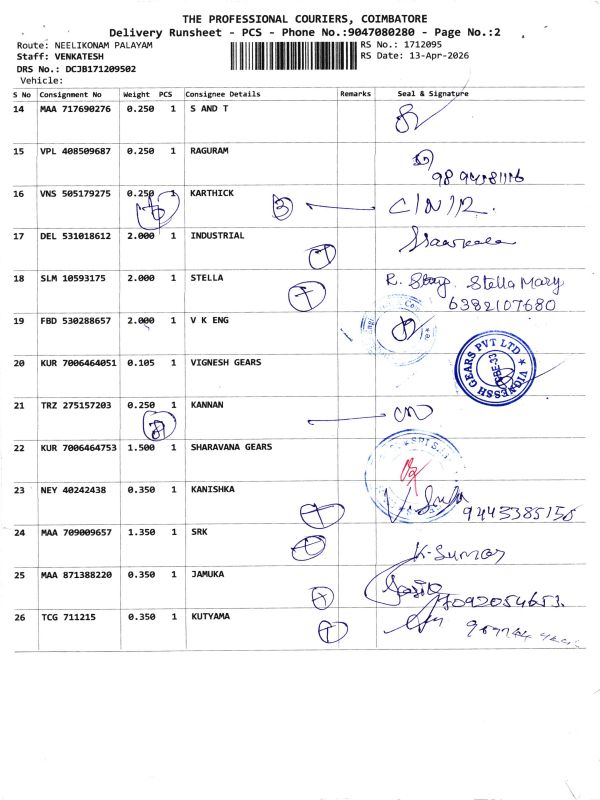 THE PROFESSIONAL COURIERS, COIMBATORE
Delivery Runsheet - PCS - Phone No.:9047080280 - Page No.:2
Route: NEELIKONAM PALAYAM RS No.: 1712095
Staff: VENKATESH RS Date: 13-Apr-2026
DRS No.: DCJB171209502
Vehicle:
S No Consignment No Weight PCS Consignee Details Remarks Seal & Signature
14 MAA 717690276 0.250 1 S AND T
15 VPL 408509687 0.250 1 RAGURAM
16 VNS 505179275 0.250 1 KARTHICK
17 DEL 531018612 2.000 1 INDUSTRIAL
18 SLM 10593175 2.000 1 STELLA Stella Mary
6382107680
19 FBD 530288657 2.000 1 V K ENG
20 KUR 7006464051 0.105 1 VIGNESH GEARS VIGNESSH GEARS PVT LTD
21 TRZ 275157203 0.250 1 KANNAN
22 KUR 7006464753 1.500 1 SHARAVANA GEARS
23 NEY 40242438 0.350 1 KANISHKA
24 MAA 709009657 1.350 1 SRK
25 MAA 871388220 0.350 1 JAMUKA
26 TCG 711215 0.350 1 KUTYAMA